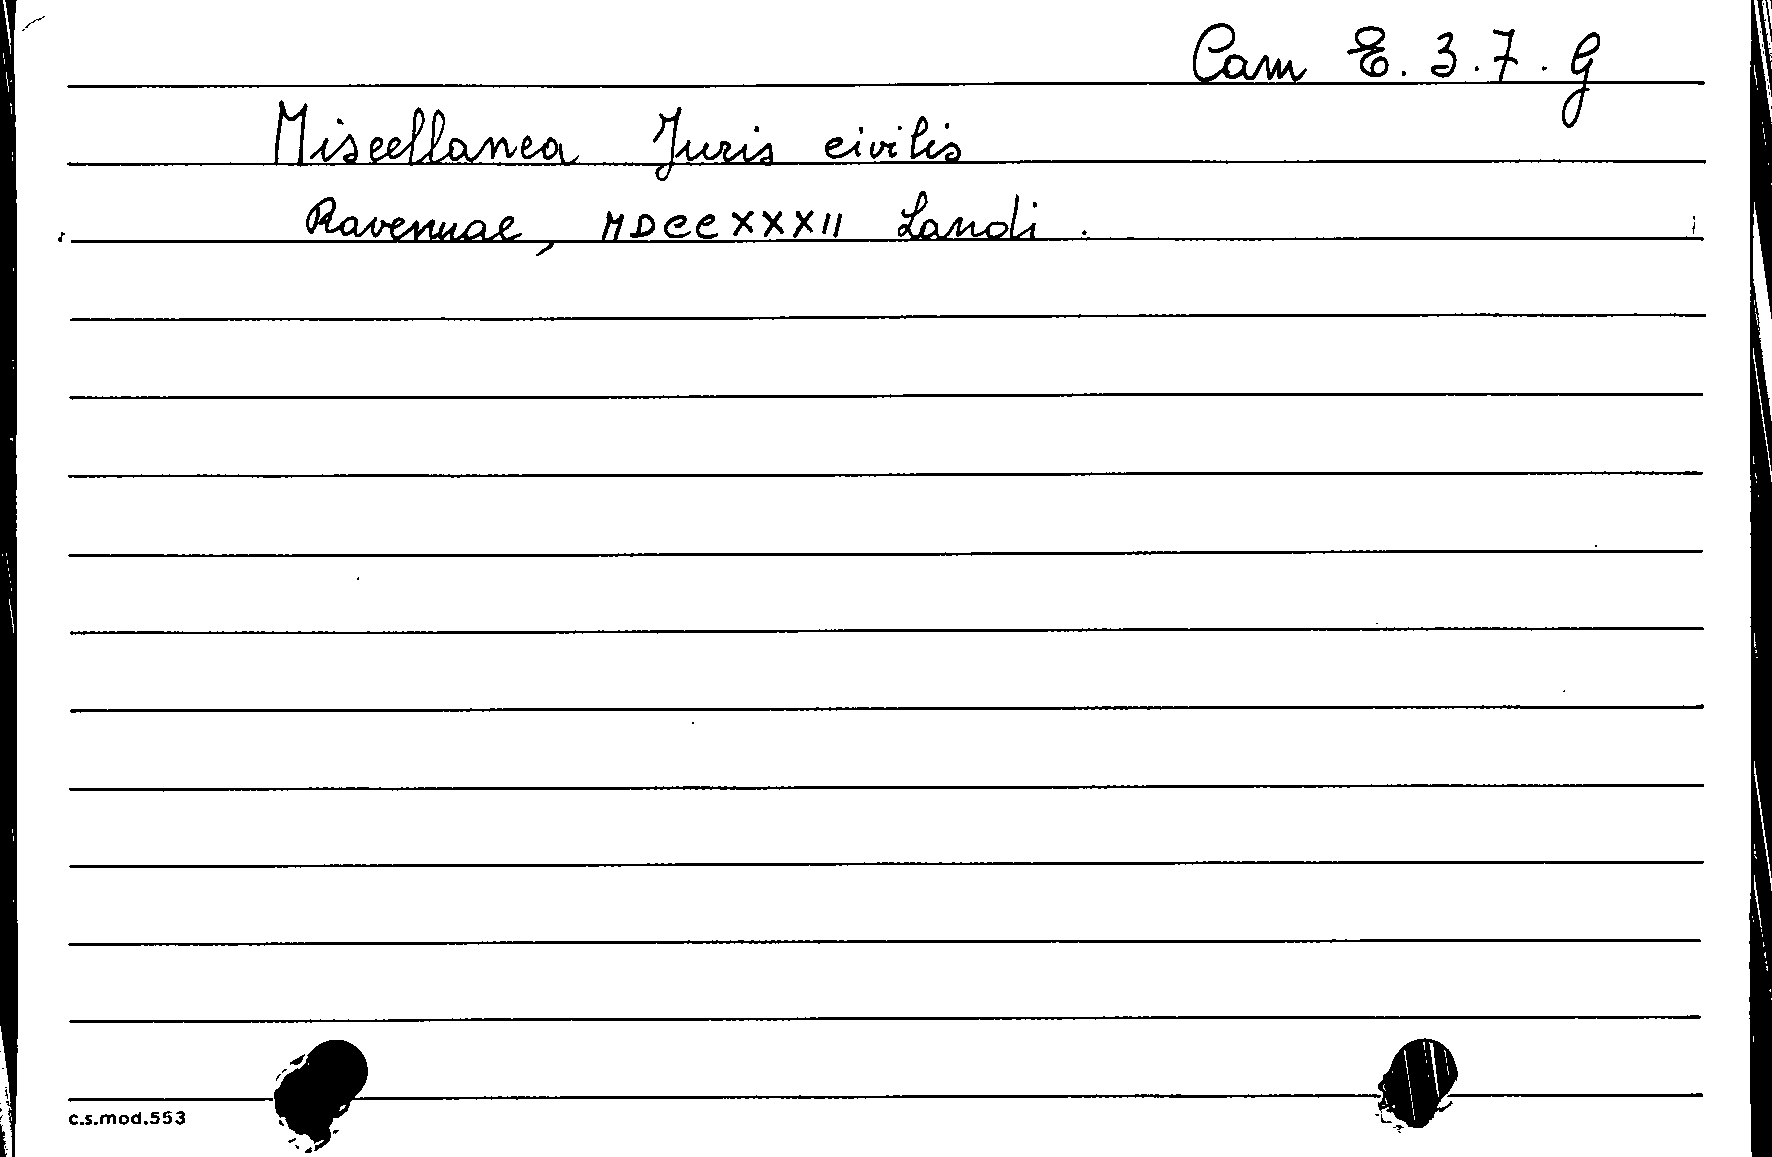 Cam E. 3. 7. G
Miscellanea Juris civilis
Ravennae, MDCCXXXII Landi.
c.s.mod.553